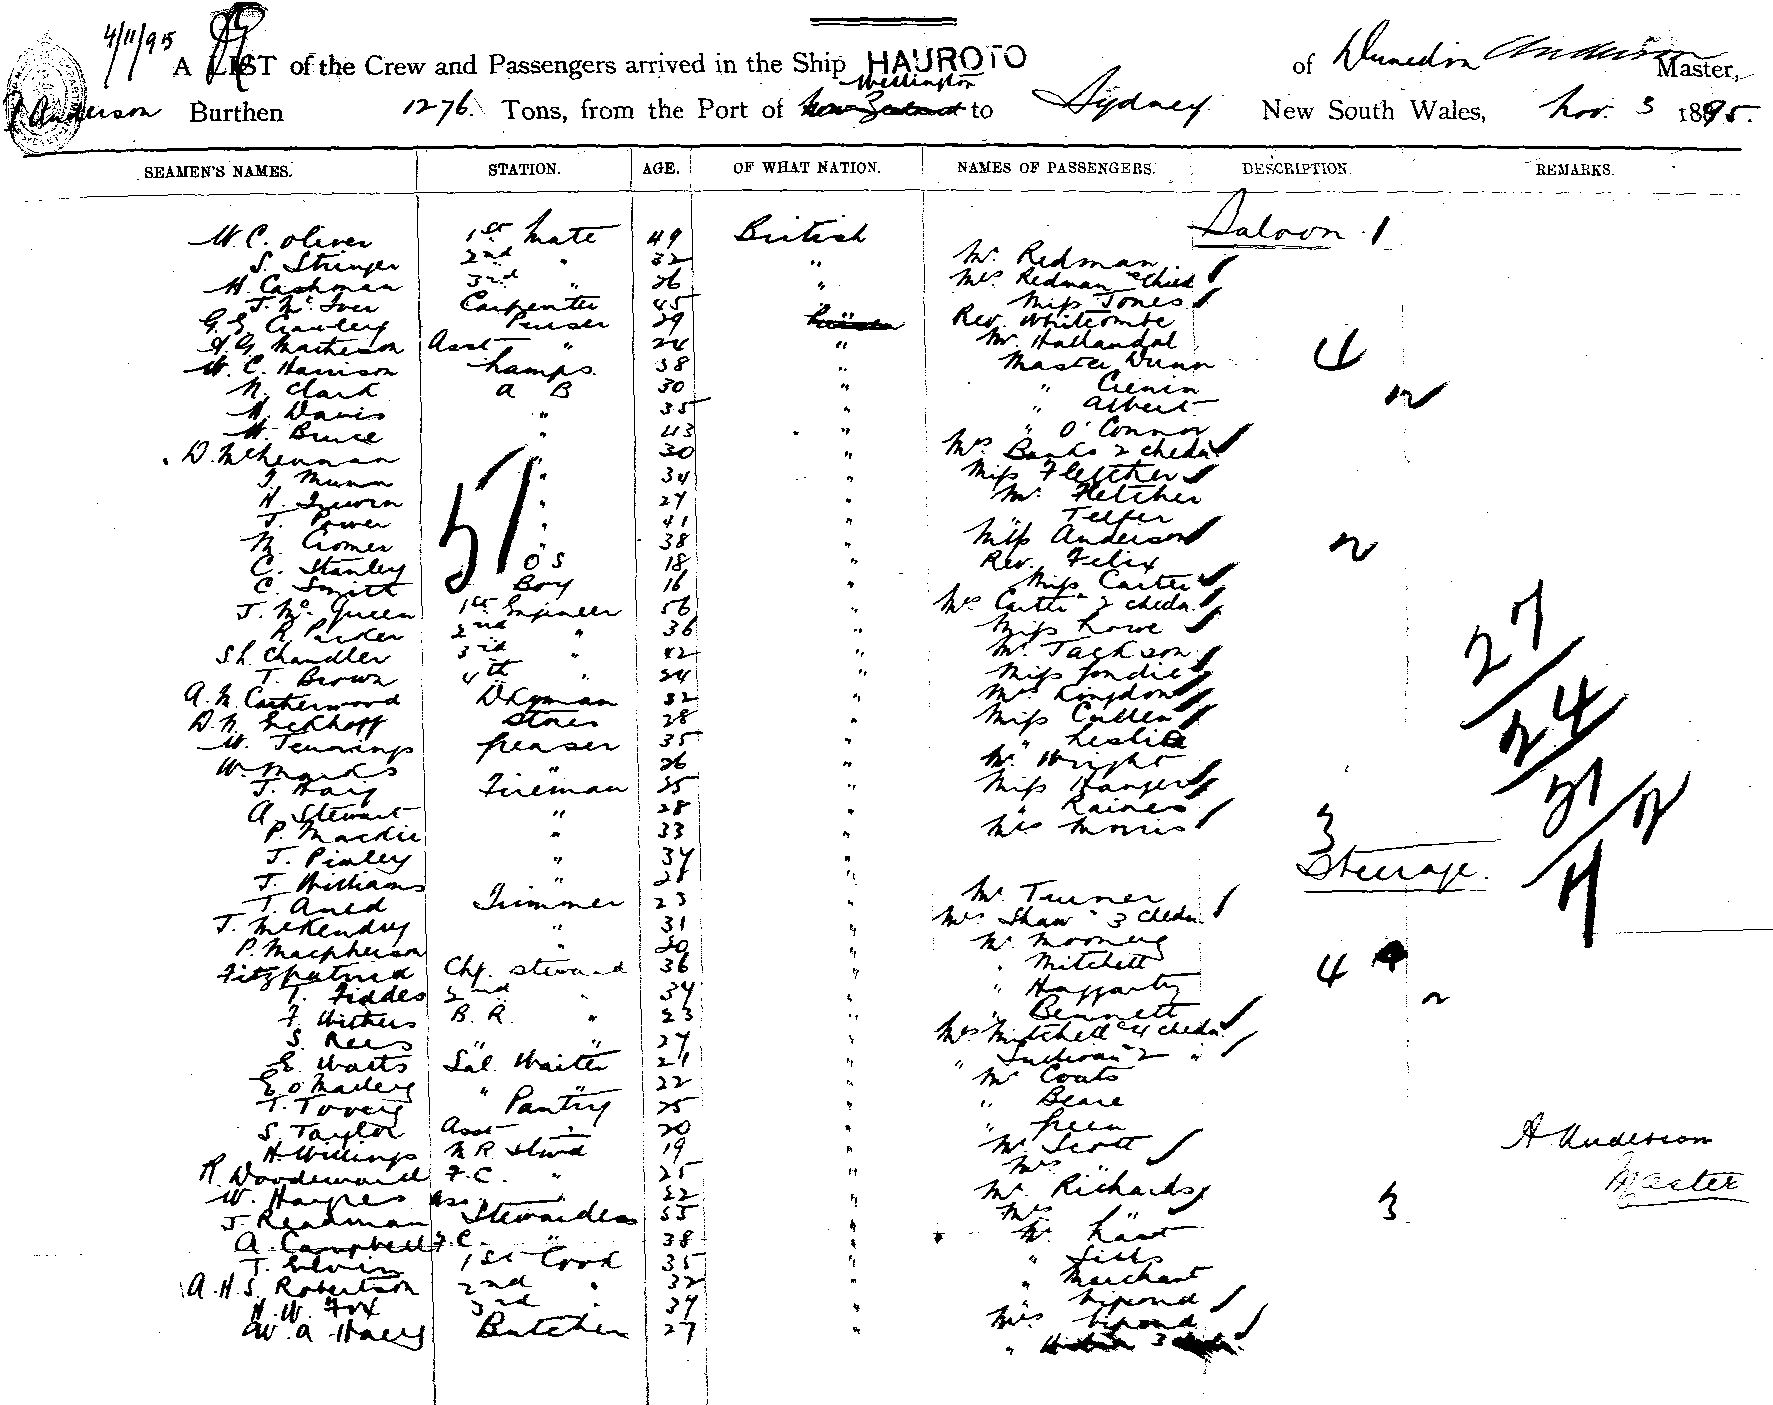 4/11/95
A LIST of the Crew and Passengers arrived in the Ship HAUROTO of Dunedin Anderson Master,
Wellington
Anderson Burthen 1276. Tons, from the Port of New Zealand to Sydney New South Wales, Nov. 3 1895.
SEAMEN'S NAMES. STATION. AGE. OF WHAT NATION. NAMES OF PASSENGERS. DESCRIPTION REMARKS.
Saloon 1
W. C. Oliver 1st Mate 49 British
S. Stringer 2nd " 32 " Mr. Redman
H. Cashman 3rd " 26 " Mrs Redman & Child
J. McIver Carpenter 45 Miss Jones
G. E. Crawley Purser 29 Rev. Whitcombe
A. G. Matheson Asst " 24 " Mr. Hallandal
W. C. Harrison Lamps. 38 " Master Dunn 4
N. Clark A B 30 " " Cienin
H. Davis " 35 " " Albert 2
W. Bruce " 43 " " O'Connor
D. McKennan " 30 " Mrs Banks 2 chedn
J. Munn " 34 " Miss Fletcher
H. Irwin " 27 " Mr. Fletcher
J. Power " 41 " " Telfer
N. Cromer " 38 " Miss Anderson 2
C. Stanley O S 18 " Rev. Felix
C. Smith Boy 16 " Miss Carter
J. McQueen 1st Engineer 56 " Mrs Carter & 2 chedn.
R. Parker 2nd " 36 " Miss Lowe
S L. Chandler 3rd " 42 " Mr. Jackson
T. Brown 4th " 24 " Miss Gondie
A. N. Catherwood Dkyman 32 " Mrs Longdon
D. N. Eickhoff Stores 28 " Miss Cullen
W. Jennings Greaser 35 " " Leslie
W. Marks " 26 " Mr. Wright
J. Hay Fireman 25 " Miss Hanger
A. Stewart " 28 " " Raines
P. Mackie " 33 " Mrs Morris 3
J. Pinley " 34 "
Steerage.
J. Williams " 28 " Mr. Turner
T. Auld Trimmer 23 " Mrs Shaw & 3 chedn
J. McKendry " 31 " Mr. Mooney
P. Macpherson " 20 " " Mitchell
Fitzpatrick Chf. Steward 36 " " Haggarty 4
T. Fiddes 2nd " 34 " " Bennett 2
F. Withers B. R. " 23 " Mrs Mitchell & 4 chedn
S. Rees " " 27 " " Sullivan & 2 "
E. Watts Sal. Waiter 21 " Mr Coats
E O'Malley " " 22 " " Beare
T. Tovey Pantry 25 " " Green
S. Taylor Asst " 20 " Mr. Scott
H. Willings N R Stwd 19 " Mrs "
R. Woodeward F. C. " 25 " Mr. Richards
W. Haynes Ass. " 22 " Mrs " 3
J. Readman Stewardess 55 " Mr.
A. Campbell F. C. " 38 " "
T. Elvin 1st Cook 35 " " Marchant
A. H. S. Robertson 2nd " 32 " " Nipond
H. W. Fox 3rd " 34 " Mrs Nipond
W. A. Haey Butcher 27 " " 3
57
27
24
31
2
4
A Anderson
Master